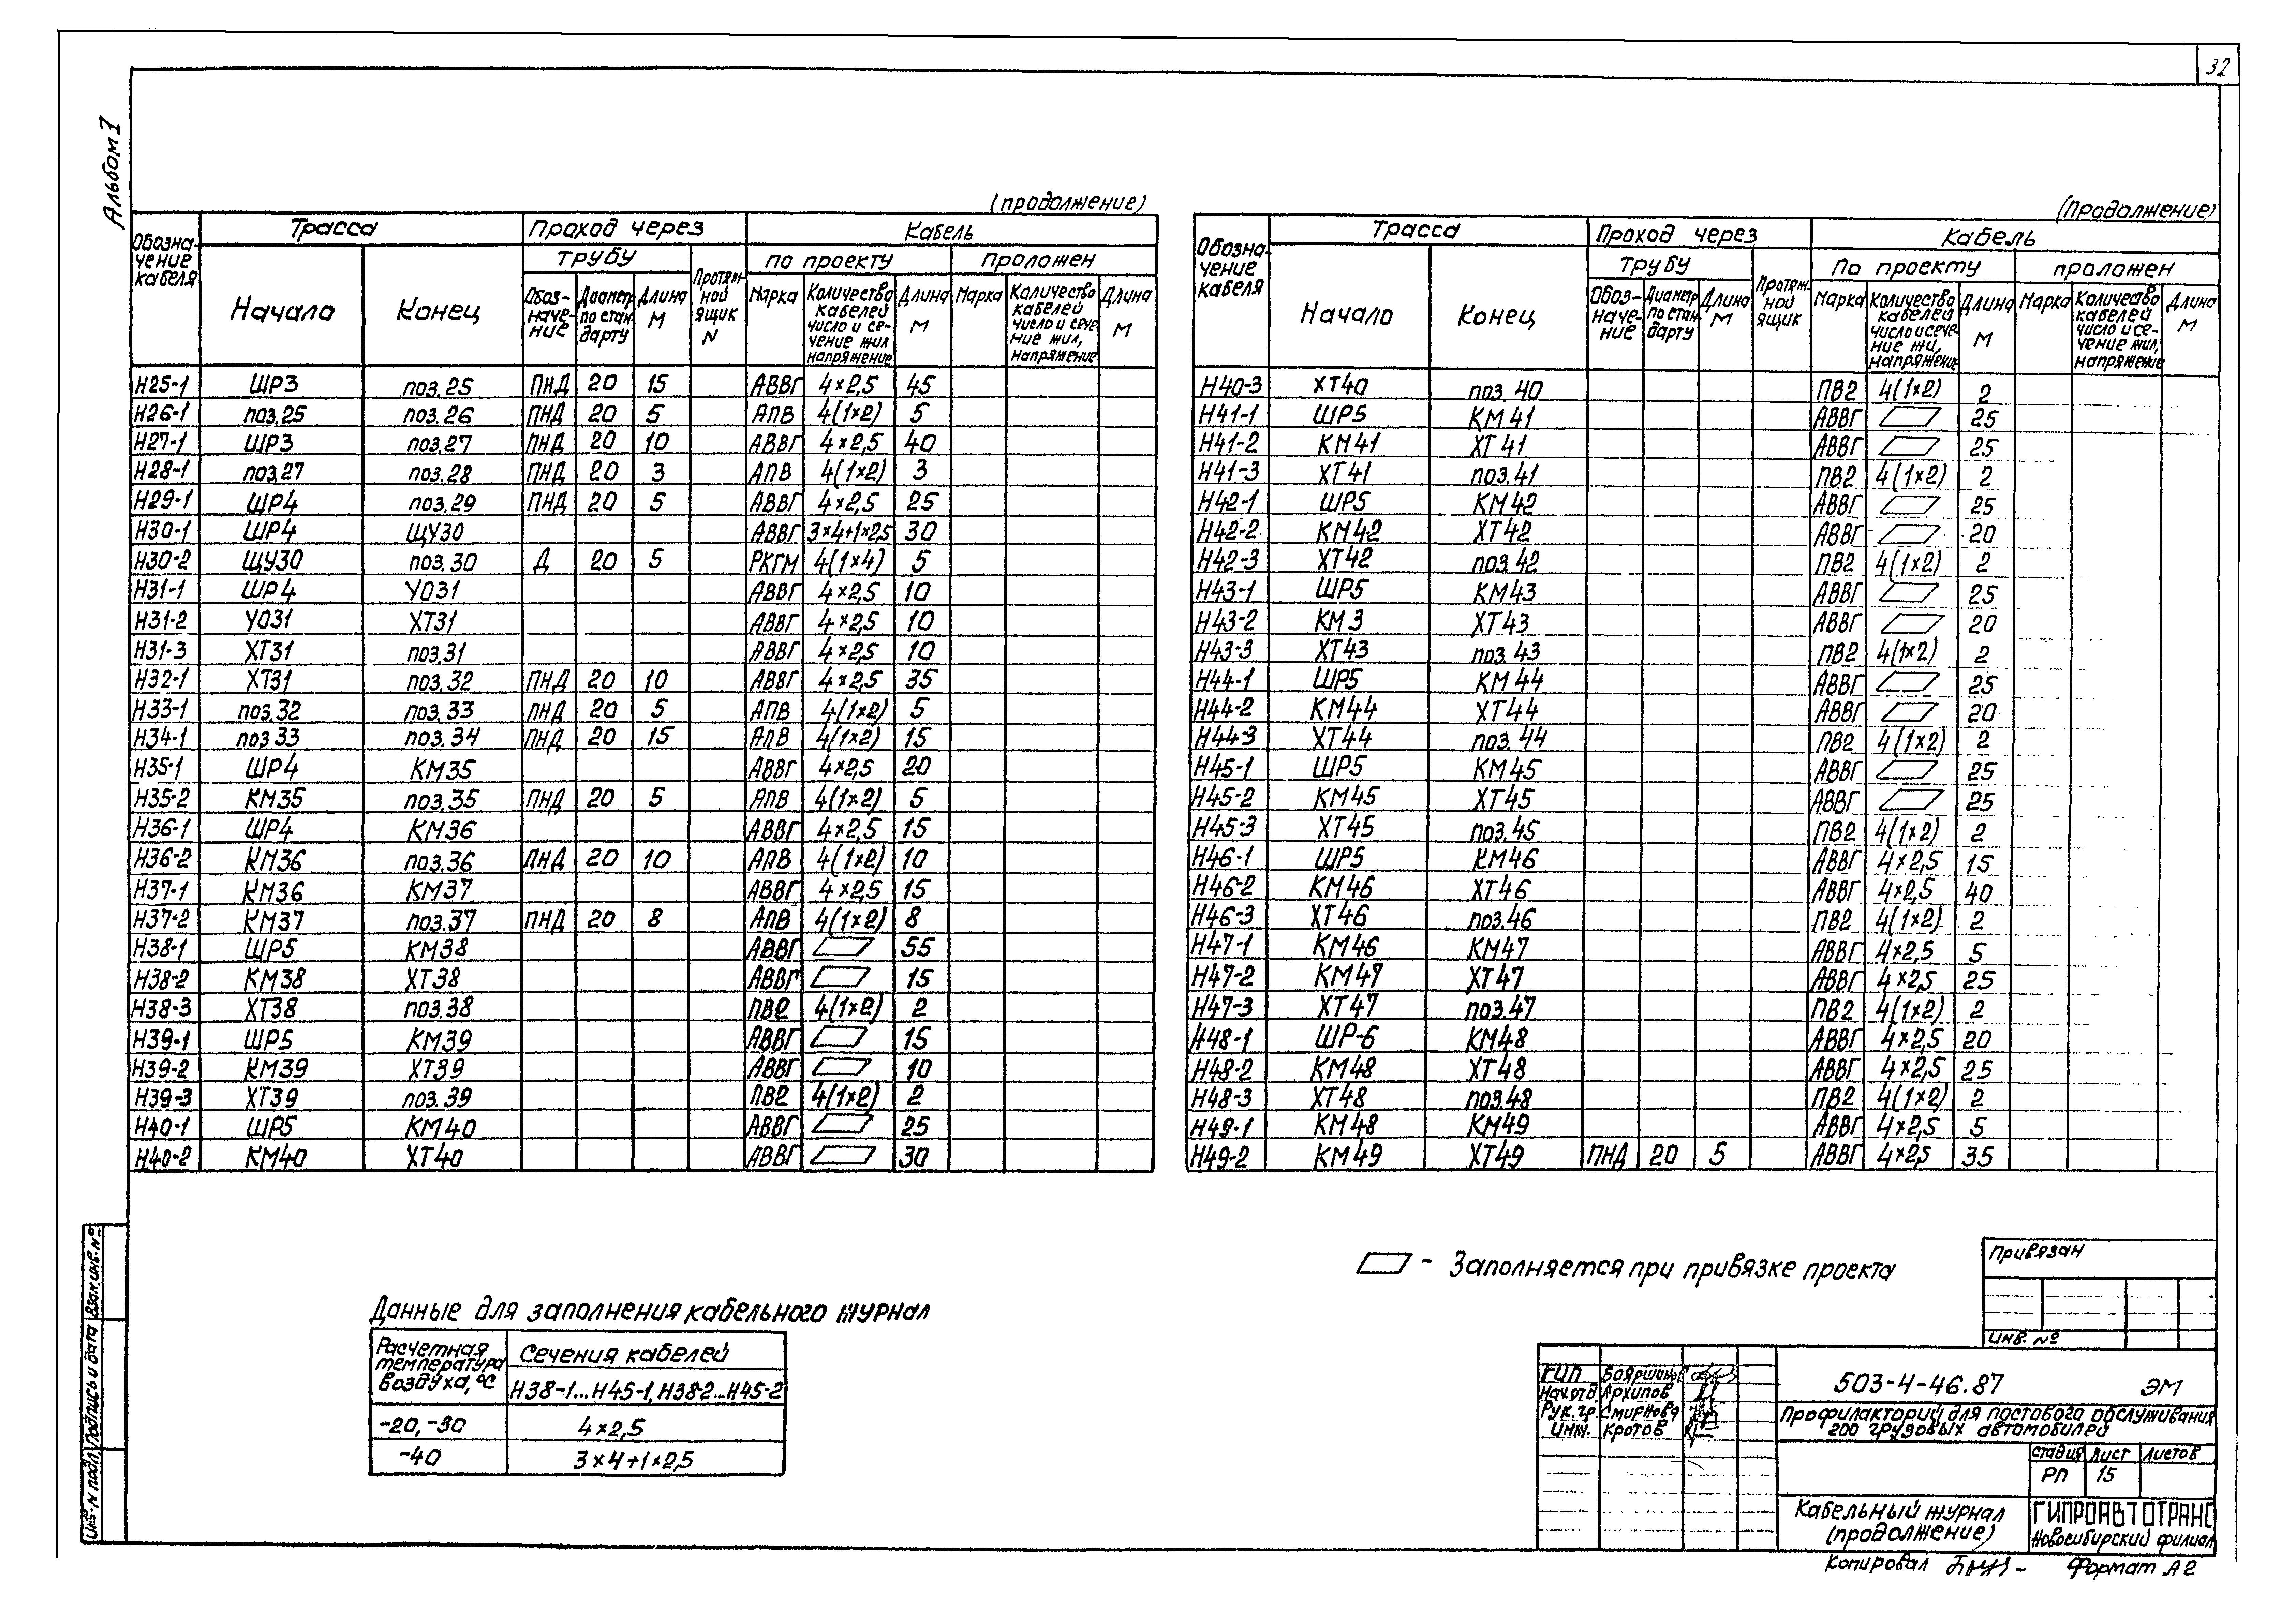 32
Альбом 1
(продолжение)
Обозна-чение кабеля | Трасса | Проход через | Кабель
трубу | Протяж-ной ящик N | по проекту | проложен
Начало | Конец | Обоз-наче-ние | Диаметр по стан-дарту | Длина м | Марка | Количество кабелей число и се-чение жил напряжение | Длина м | Марка | Количество кабелей число и сече-ние жил, напряжение | Длина м
Н25-1 ШР3 поз.25 ПНД 20 15 АВВГ 4×2,5 45
Н26-1 поз.25 поз.26 ПНД 20 5 АПВ 4(1×2) 5
Н27-1 ШР3 поз.27 ПНД 20 10 АВВГ 4×2,5 40
Н28-1 поз.27 поз.28 ПНД 20 3 АПВ 4(1×2) 3
Н29-1 ШР4 поз.29 ПНД 20 5 АВВГ 4×2,5 25
Н30-1 ШР4 ЩУ30 АВВГ 3×4+1×2,5 30
Н30-2 ЩУ30 поз.30 Д 20 5 РКГМ 4(1×4) 5
Н31-1 ШР4 УО31 АВВГ 4×2,5 10
Н31-2 УО31 ХТ31 АВВГ 4×2,5 10
Н31-3 ХТ31 поз.31 АВВГ 4×2,5 10
Н32-1 ХТ31 поз.32 ПНД 20 10 АВВГ 4×2,5 35
Н33-1 поз.32 поз.33 ПНД 20 5 АПВ 4(1×2) 5
Н34-1 поз 33 поз.34 ПНД 20 15 АПВ 4(1×2) 15
Н35-1 ШР4 КМ35 АВВГ 4×2,5 20
Н35-2 КМ35 поз.35 ПНД 20 5 АПВ 4(1×2) 5
Н36-1 ШР4 КМ36 АВВГ 4×2,5 15
Н36-2 КМ36 поз.36 ПНД 20 10 АПВ 4(1×2) 10
Н37-1 КМ36 КМ37 АВВГ 4×2,5 15
Н37-2 КМ37 поз.37 ПНД 20 8 АПВ 4(1×2) 8
Н38-1 ШР5 КМ38 АВВГ 55
Н38-2 КМ38 ХТ38 АВВГ 15
Н38-3 ХТ38 поз.38 ПВ2 4(1×2) 2
Н39-1 ШР5 КМ39 АВВГ 15
Н39-2 КМ39 ХТ39 АВВГ 10
Н39-3 ХТ39 поз.39 ПВ2 4(1×2) 2
Н40-1 ШР5 КМ40 АВВГ 25
Н40-2 КМ40 ХТ40 АВВГ 30
(Продолжение)
Обозна-чение кабеля | Трасса | Проход через | Кабель
трубу | Протяж-ной ящик | По проекту | проложен
Начало | Конец | Обоз-наче-ние | Диаметр по стан-дарту | Длина м | Марка | Количество кабелей число и сече-ние жи, напряжение | Длина м | Марка | Количество кабелей число и се-чение жил, напряжение | Длина м
Н40-3 ХТ40 поз.40 ПВ2 4(1×2) 2
Н41-1 ШР5 КМ41 АВВГ 25
Н41-2 КМ41 ХТ41 АВВГ 25
Н41-3 ХТ41 поз.41 ПВ2 4(1×2) 2
Н42-1 ШР5 КМ42 АВВГ 25
Н42-2 КМ42 ХТ42 АВВГ 20
Н42-3 ХТ42 поз.42 ПВ2 4(1×2) 2
Н43-1 ШР5 КМ43 АВВГ 25
Н43-2 КМ3 ХТ43 АВВГ 20
Н43-3 ХТ43 поз.43 ПВ2 4(1×2) 2
Н44-1 ШР5 КМ44 АВВГ 25
Н44-2 КМ44 ХТ44 АВВГ 20
Н44-3 ХТ44 поз.44 ПВ2 4(1×2) 2
Н45-1 ШР5 КМ45 АВВГ 25
Н45-2 КМ45 ХТ45 АВВГ 25
Н45-3 ХТ45 поз.45 ПВ2 4(1×2) 2
Н46-1 ШР5 КМ46 АВВГ 4×2,5 15
Н46-2 КМ46 ХТ46 АВВГ 4×2,5 40
Н46-3 ХТ46 поз.46 ПВ2 4(1×2) 2
Н47-1 КМ46 КМ47 АВВГ 4×2,5 5
Н47-2 КМ47 ХТ47 АВВГ 4×2,5 25
Н47-3 ХТ47 поз.47 ПВ2 4(1×2) 2
Н48-1 ШР-6 КМ48 АВВГ 4×2,5 20
Н48-2 КМ48 ХТ48 АВВГ 4×2,5 25
Н48-3 ХТ48 поз.48 ПВ2 4(1×2) 2
Н49-1 КМ48 КМ49 АВВГ 4×2,5 5
Н49-2 КМ49 ХТ49 ПНД 20 5 АВВГ 4×2,5 35
- Заполняется при привязке проекта
Данные для заполнения кабельного журнал
Расчетная температура воздуха, °С | Сечения кабелей
Н38-1...Н45-1, Н38-2...Н45-2
-20,-30 4×2,5
-40 3×4+1×2,5
Привязан
Инв. №
ГИП
Нач.отд Архипов
Рук.гр. Смирнова
Инж. Кротов
503-4-46.87 ЭМ
Профилакторий для постового обслуживания
200 грузовых автомобилей
стадия Лист Листов
РП 15
Кабельный журнал
(продолжение)
ГИПРОАВТОТРАНС
Новосибирский филиал
Копировал
Формат А2
Инв. N подл. Подпись и дата Взам.инв.№